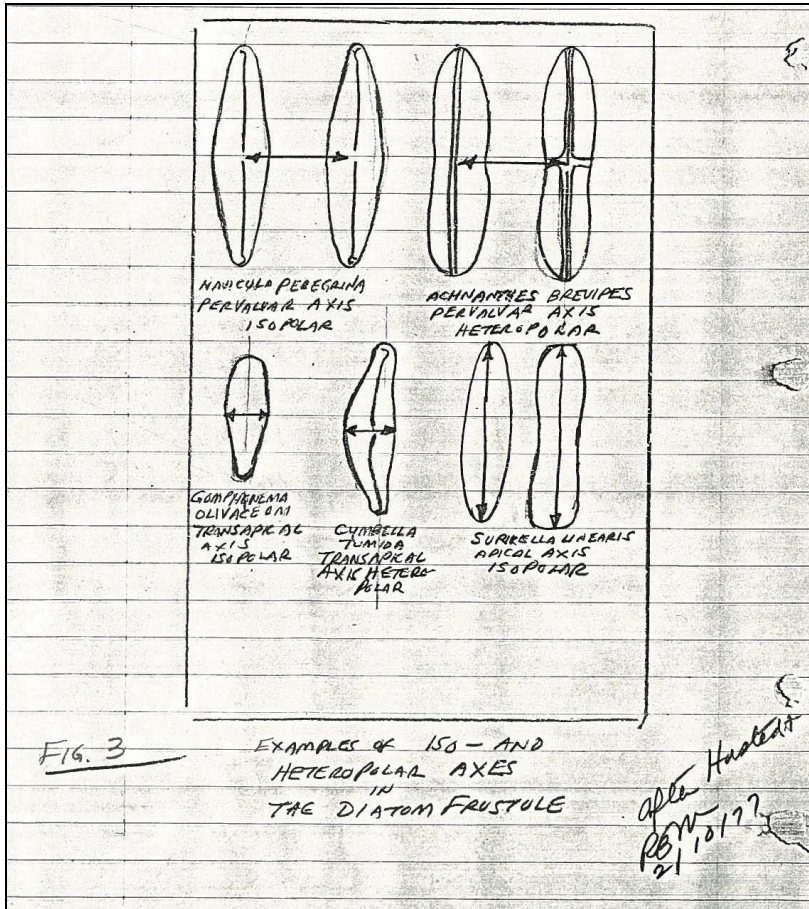 NAVICULA PEREGRINA
PERVALVAR AXIS
ISOPOLAR
ACHNANTHES BREVIPES
PERVALVAR AXIS
HETEROPOLAR
GOMPHONEMA
OLIVACEOM
TRANSAPICAL
AXIS
ISOPOLAR
CYMBELLA
TUMIDA
TRANSAPICAL
AXIS HETERO-
POLAR
SURIRELLA LINEARIS
APICAL AXIS
ISOPOLAR
FIG. 3
EXAMPLES OF ISO- AND
HETEROPOLAR AXES
IN
THE DIATOM FRUSTULE
after Hustedt
2/10/77